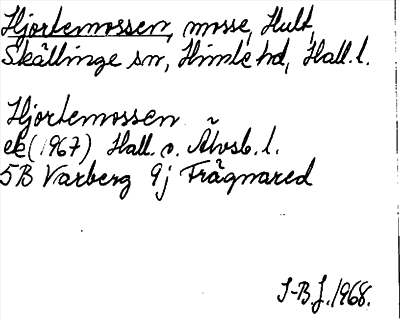 Hjortemossen, mosse, Hult,
Skällinge sn, Himle hd, Hall. l.
Hjortemossen
ek (1967) Hall. o. Älvsb. l.
5B Varberg 9j Frägnared
S-B.J. 1968.